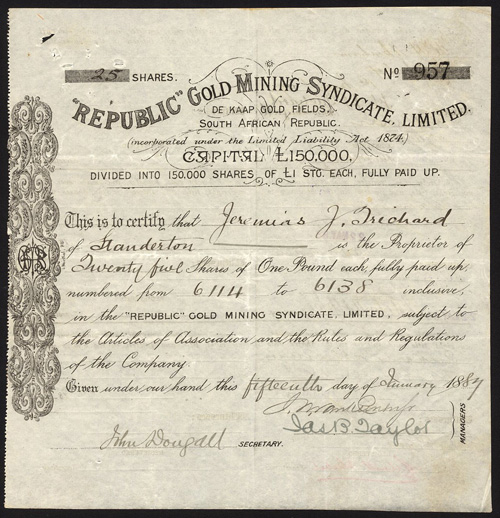 25 SHARES. No 957
"REPUBLIC" GOLD MINING SYNDICATE, LIMITED.
DE KAAP GOLD FIELDS,
SOUTH AFRICAN REPUBLIC.
(incorporated under the Limited Liability Act 1874.)
CAPITAL £150,000,
DIVIDED INTO 150,000 SHARES OF £1 STG. EACH, FULLY PAID UP.
This is to certify that Jeremias J. Trichard
of Standerton is the Proprietor of
Twenty five Shares of One Pound each, fully paid up,
numbered from 6114 to 6138 inclusive,
in the "REPUBLIC" GOLD MINING SYNDICATE, LIMITED, subject to
the Articles of Association and the Rules and Regulations
of the Company.
Given under our hand this fifteenth day of January 1887
Jas B Taylor
MANAGERS
John Dougall SECRETARY.